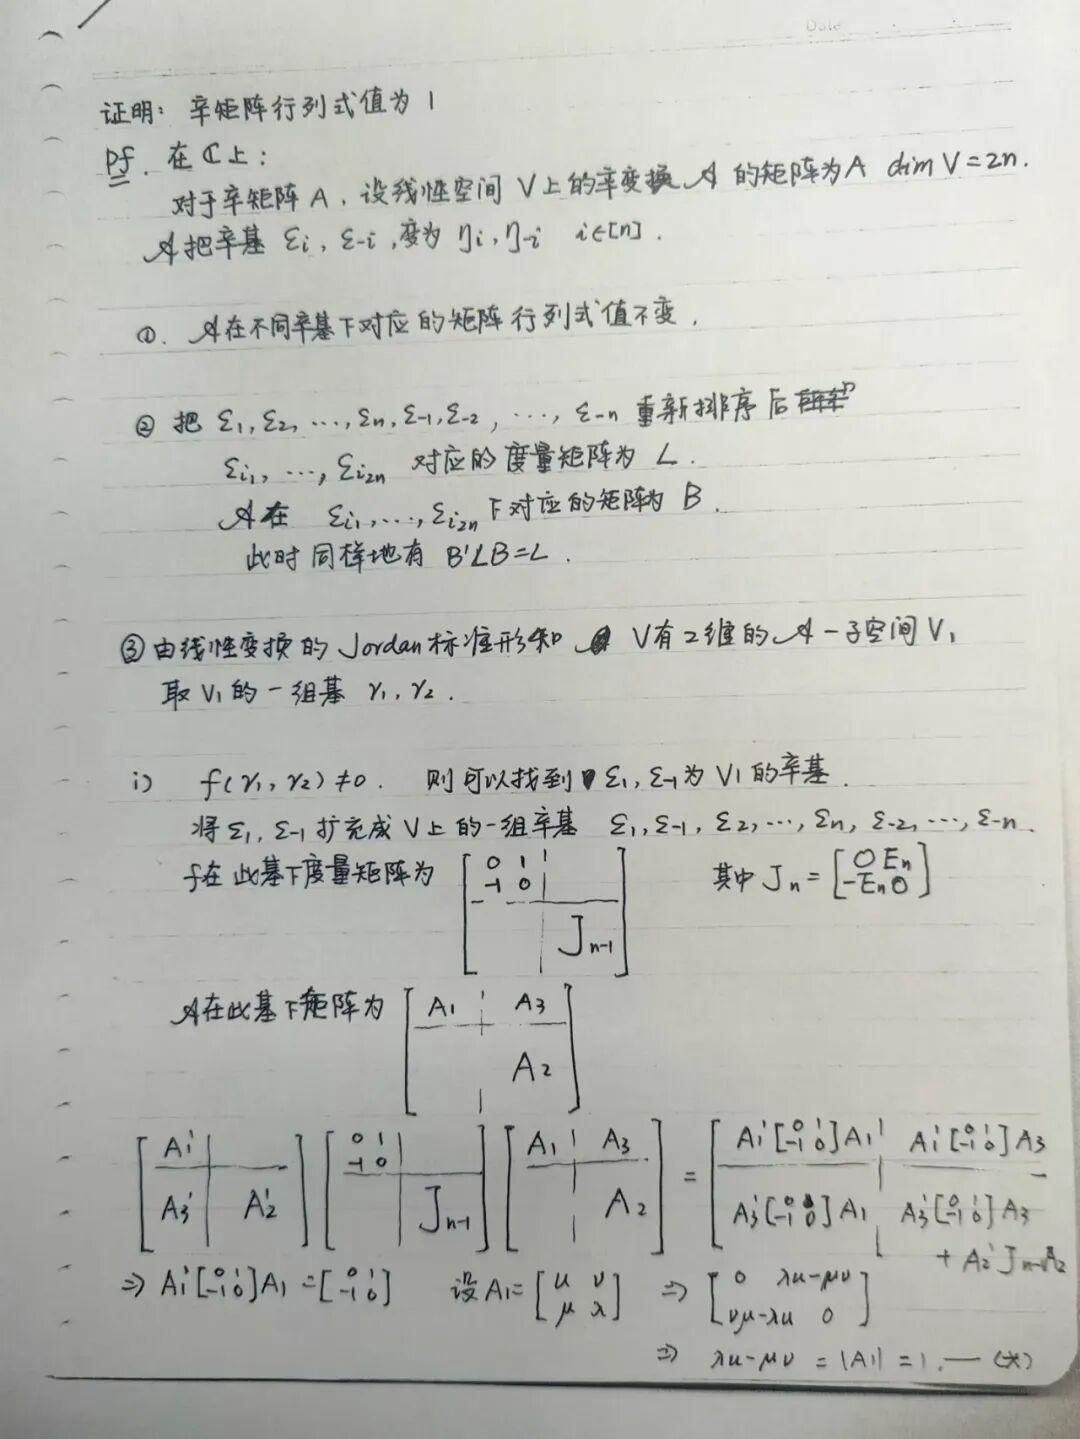 Date
证明: 辛矩阵行列式值为 1
Pf. 在 ℂ 上:
对于辛矩阵 A, 设线性空间 V 上的辛变换 𝒜 的矩阵为 A dim V = 2n.
𝒜 把辛基 εi, ε-i, 变为 ηi, η-i i∈[n].
①. 𝒜 在不同辛基下对应的矩阵行列式值不变.
② 把 ε1, ε2, ..., εn, ε-1, ε-2, ..., ε-n 重新排序后
εi1, ..., εi2n 对应的度量矩阵为 L.
𝒜 在 εi1, ..., εi2n 下对应的矩阵为 B.
此时同样地有 B'LB = L.
③ 由线性变换的 Jordan 标准形知 V 有 2 维的 𝒜-子空间 V1
取 V1 的一组基 γ1, γ2.
i) f(γ1, γ2) ≠ 0. 则可以找到 ε1, ε-1 为 V1 的辛基.
将 ε1, ε-1 扩充成 V 上的一组辛基 ε1, ε-1, ε2, ..., εn, ε-2, ..., ε-n.
f 在此基下度量矩阵为 [0 1 | ; -1 0 | ; | Jn-1] 其中 Jn = [0 En ; -En 0]
𝒜 在此基下矩阵为 [A1 | A3 ; | A2]
[A1' | ; A3' | A2'] [0 1 | ; -1 0 | ; | Jn-1] [A1 | A3 ; | A2] = [A1'[0 1 ; -1 0]A1 | A1'[0 1 ; -1 0]A3 ; A3'[0 1 ; -1 0]A1 | A3'[0 1 ; -1 0]A3 + A2'Jn-1A2]
⇒ A1'[0 1 ; -1 0]A1 = [0 1 ; -1 0] 设 A1 = [u ν ; μ λ] ⇒ [0 λu-μν ; νμ-λu 0]
⇒ λu-μν = |A1| = 1. — (*)